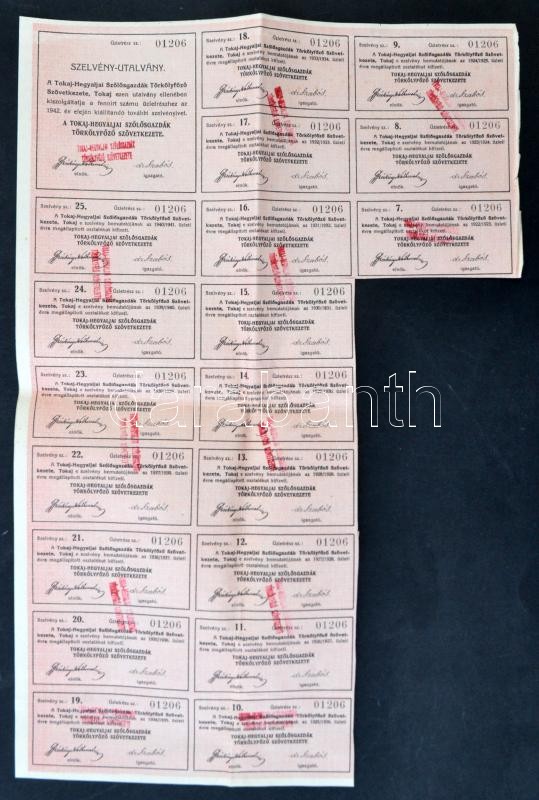 Üzletrész sz.: 01206
SZELVÉNY-UTALVÁNY.
A Tokaj-Hegyaljai Szőlősgazdák Törkölyfőző
Szövetkezete, Tokaj ezen utalvány ellenében
kiszolgáltatja a fennirt számu üzletrészhez az
1942. év elején kiállitandó további szelvényivet.
A TOKAJ-HEGYALJAI SZŐLŐSGAZDÁK
TÖRKÖLYFŐZŐ SZÖVETKEZETE.
TOKAJ-HEGYALJAI SZŐLŐSGAZDÁK
TÖRKÖLYFŐZŐ SZÖVETKEZETE
elnök. igazgató.
Szelvény sz.: 25. Üzletrész sz.: 01206
A Tokaj-Hegyaljai Szőlősgazdák Törkölyfőző Szövet-
kezete, Tokaj e szelvény bemutatójának az 1940/1941. üzleti
évre megállapított osztalékot kifizeti.
TOKAJ-HEGYALJAI SZŐLŐSGAZDÁK
TÖRKÖLYFŐZŐ SZÖVETKEZETE
elnök. igazgató.
Szelvény sz.: 24. Üzletrész sz.: 01206
A Tokaj-Hegyaljai Szőlősgazdák Törkölyfőző Szövet-
kezete, Tokaj e szelvény bemutatójának az 1939/1940. üzleti
évre megállapított osztalékot kifizeti.
TOKAJ-HEGYALJAI SZŐLŐSGAZDÁK
TÖRKÖLYFŐZŐ SZÖVETKEZETE
elnök. igazgató.
Szelvény sz.: 23. Üzletrész sz.: 01206
A Tokaj-Hegyaljai Szőlősgazdák Törkölyfőző Szövet-
TOKAJ-HEGYALJAI SZŐLŐSGAZDÁK
TÖRKÖLYFŐZŐ SZÖVETKEZETE
elnök. igazgató.
Szelvény sz.: 22. Üzletrész sz.: 01206
A Tokaj-Hegyaljai Szőlősgazdák Törkölyfőző Szövet-
kezete, Tokaj e szelvény bemutatójának az 1937/1938. üzleti
évre megállapított osztalékot kifizeti.
TOKAJ-HEGYALJAI SZŐLŐSGAZDÁK
TÖRKÖLYFŐZŐ SZÖVETKEZETE
elnök. igazgató.
Szelvény sz.: 21. Üzletrész sz.: 01206
A Tokaj-Hegyaljai Szőlősgazdák Törkölyfőző Szövet-
kezete, Tokaj e szelvény bemutatójának az 1936/1937. üzleti
évre megállapított osztalékot kifizeti.
TOKAJ-HEGYALJAI SZŐLŐSGAZDÁK
TÖRKÖLYFŐZŐ SZÖVETKEZETE
elnök. igazgató.
Szelvény sz.: 20. Üzletrész sz.: 01206
A Tokaj-Hegyaljai Szőlősgazdák Törkölyfőző Szövet-
kezete, Tokaj e szelvény bemutatójának az 1935/1936. üzleti
évre megállapított osztalékot kifizeti.
TOKAJ-HEGYALJAI SZŐLŐSGAZDÁK
TÖRKÖLYFŐZŐ SZÖVETKEZETE
elnök. igazgató.
Szelvény sz.: 19. Üzletrész sz.: 01206
A Tokaj-Hegyaljai Szőlősgazdák Törkölyfőző Szövet-
kezete, Tokaj e szelvény bemutatójának az 1934/1935. üzleti
évre megállapított osztalékot kifizeti.
TOKAJ-HEGYALJAI SZŐLŐSGAZDÁK
TÖRKÖLYFŐZŐ SZÖVETKEZETE
elnök. igazgató.
Szelvény sz.: 18. Üzletrész sz.: 01206
A Tokaj-Hegyaljai Szőlősgazdák Törkölyfőző Szövet-
kezete, Tokaj e szelvény bemutatójának az 1933/1934. üzleti
évre megállapított osztalékot kifizeti.
TOKAJ-HEGYALJAI SZŐLŐSGAZDÁK
TÖRKÖLYFŐZŐ SZÖVETKEZETE
elnök. igazgató.
Szelvény sz.: 17. Üzletrész sz.: 01206
A Tokaj-Hegyaljai Szőlősgazdák Törkölyfőző Szövet-
kezete, Tokaj e szelvény bemutatójának az 1932/1933. üzleti
évre megállapított osztalékot kifizeti.
TOKAJ-HEGYALJAI SZŐLŐSGAZDÁK
TÖRKÖLYFŐZŐ SZÖVETKEZETE
elnök. igazgató.
Szelvény sz.: 16. Üzletrész sz.: 01206
A Tokaj-Hegyaljai Szőlősgazdák Törkölyfőző Szövet-
kezete, Tokaj e szelvény bemutatójának az 1931/1932. üzleti
évre megállapított osztalékot kifizeti.
TOKAJ-HEGYALJAI SZŐLŐSGAZDÁK
TÖRKÖLYFŐZŐ SZÖVETKEZETE
elnök. igazgató.
Szelvény sz.: 15. Üzletrész sz.: 01206
A Tokaj-Hegyaljai Szőlősgazdák Törkölyfőző Szövet-
kezete, Tokaj e szelvény bemutatójának az 1930/1931. üzleti
évre megállapított osztalékot kifizeti.
TOKAJ-HEGYALJAI SZŐLŐSGAZDÁK
TÖRKÖLYFŐZŐ SZÖVETKEZETE
elnök. igazgató.
Szelvény sz.: 14. Üzletrész sz.: 01206
A Tokaj-Hegyaljai Szőlősgazdák Törkölyfőző Szövet-
TÖRKÖLYFŐZŐ SZÖVETKEZETE
elnök. igazgató.
Szelvény sz.: 13. Üzletrész sz.: 01206
A Tokaj-Hegyaljai Szőlősgazdák Törkölyfőző Szövet-
kezete, Tokaj e szelvény bemutatójának az 1928/1929. üzleti
évre megállapított osztalékot kifizeti.
TOKAJ-HEGYALJAI SZŐLŐSGAZDÁK
TÖRKÖLYFŐZŐ SZÖVETKEZETE
elnök. igazgató.
Szelvény sz.: 12. Üzletrész sz.: 01206
A Tokaj-Hegyaljai Szőlősgazdák Törkölyfőző Szövet-
kezete, Tokaj e szelvény bemutatójának az 1927/1928. üzleti
évre megállapított osztalékot kifizeti.
TOKAJ-HEGYALJAI SZŐLŐSGAZDÁK
TÖRKÖLYFŐZŐ SZÖVETKEZETE
elnök. igazgató.
Szelvény sz.: 11. Üzletrész sz.: 01206
A Tokaj-Hegyaljai Szőlősgazdák Törkölyfőző Szövet-
kezete, Tokaj e szelvény bemutatójának az 1926/1927. üzleti
évre megállapított osztalékot kifizeti.
TOKAJ-HEGYALJAI SZŐLŐSGAZDÁK
TÖRKÖLYFŐZŐ SZÖVETKEZETE
elnök. igazgató.
Szelvény sz.: 10. Üzletrész sz.: 01206
A Tokaj-Hegyaljai Szőlősgazdák Törkölyfőző Szövet-
kezete, Tokaj e szelvény bemutatójának az 1925/1926. üzleti
évre megállapított osztalékot kifizeti.
TOKAJ-HEGYALJAI SZŐLŐSGAZDÁK
TÖRKÖLYFŐZŐ SZÖVETKEZETE
elnök. igazgató.
Szelvény sz.: 9. Üzletrész sz.: 01206
A Tokaj-Hegyaljai Szőlősgazdák Törkölyfőző Szövet-
kezete, Tokaj e szelvény bemutatójának az 1924/1925. üzleti
évre megállapított osztalékot kifizeti.
TOKAJ-HEGYALJAI SZŐLŐSGAZDÁK
TÖRKÖLYFŐZŐ SZÖVETKEZETE
elnök. igazgató.
Szelvény sz.: 8. Üzletrész sz.: 01206
A Tokaj-Hegyaljai Szőlősgazdák Törkölyfőző Szövet-
kezete, Tokaj e szelvény bemutatójának az 1923/1924. üzleti
évre megállapított osztalékot kifizeti.
TOKAJ-HEGYALJAI SZŐLŐSGAZDÁK
TÖRKÖLYFŐZŐ SZÖVETKEZETE
elnök. igazgató.
Szelvény sz.: 7. Üzletrész sz.: 01206
A Tokaj-Hegyaljai Szőlősgazdák Törkölyfőző Szövet-
kezete, Tokaj e szelvény bemutatójának az 1922/1923. üzleti
évre megállapított osztalékot kifizeti.
TOKAJ-HEGYALJAI SZŐLŐSGAZDÁK
TÖRKÖLYFŐZŐ SZÖVETKEZETE
elnök. igazgató.
darabanth